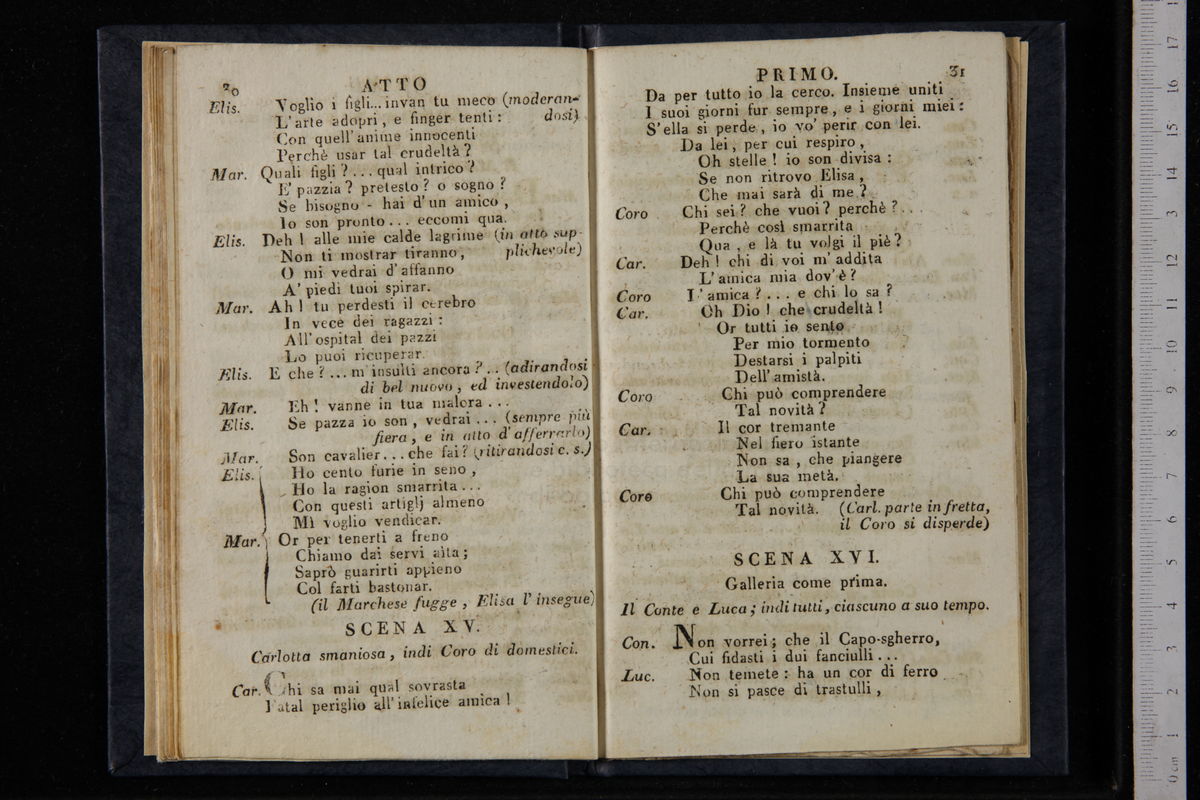 30 ATTO
Elis. Voglio i figli... invan tu meco (moderan-
L'arte adopri, e finger tenti: dosi)
Con quell'anime innocenti
Perchè usar tal crudeltà?
Mar. Quali figli?... qual intrico?
E' pazzia? pretesto? o sogno?
Se bisogno - hai d'un amico,
Io son pronto... eccomi qua.
Elis. Deh! alle mie calde lagrime (in atto sup-
Non ti mostrar tiranno, plichevole)
O mi vedrai d'affanno
A' piedi tuoi spirar.
Mar. Ah! tu perdesti il cerebro
In vece dei ragazzi:
All'ospital dei pazzi
Lo puoi ricuperar.
Elis. E che?... m'insulti ancora?.. (adirandosi
di bel nuovo, ed investendolo)
Mar. Eh! vanne in tua malora...
Elis. Se pazza io son, vedrai... (sempre più
fiera, e in atto d'afferrarlo)
Mar. Son cavalier... che fai? (ritirandosi c. s.)
Elis. Ho cento furie in seno,
Ho la ragion smarrita...
Con questi artiglj almeno
Mi voglio vendicar.
Mar. Or per tenerti a freno
Chiamo dai servi aita;
Saprò guarirti appieno
Col farti bastonar.
(il Marchese fugge, Elisa l'insegue)
SCENA XV.
Carlotta smaniosa, indi Coro di domestici.
Car. Chi sa mai qual sovrasta
Fatal periglio all'infelice amica!
PRIMO. 31
Da per tutto io la cerco. Insieme uniti
I suoi giorni fur sempre, e i giorni miei:
S'ella si perde, io vo' perir con lei.
Da lei, per cui respiro,
Oh stelle! io son divisa:
Se non ritrovo Elisa,
Che mai sarà di me?
Coro Chi sei? che vuoi? perchè?..
Perchè così smarrita
Qua, e là tu volgi il piè?
Car. Deh! chi di voi m'addita
L'amica mia dov'è?
Coro L'amica?... e chi lo sa?
Car. Oh Dio! che crudeltà!
Or tutti io sento
Per mio tormento
Destarsi i palpiti
Dell'amistà.
Coro Chi può comprendere
Tal novità?
Car. Il cor tremante
Nel fiero istante
Non sa, che piangere
La sua metà.
Coro Chi può comprendere
Tal novità. (Carl. parte in fretta,
il Coro si disperde)
SCENA XVI.
Galleria come prima.
Il Conte e Luca; indi tutti, ciascuno a suo tempo.
Con. Non vorrei; che il Capo-sgherro,
Cui fidasti i dui fanciulli...
Luc. Non temete: ha un cor di ferro
Non si pasce di trastulli,
0 cm 1 2 3 4 5 6 7 8 9 10 11 12 13 14 15 16 17